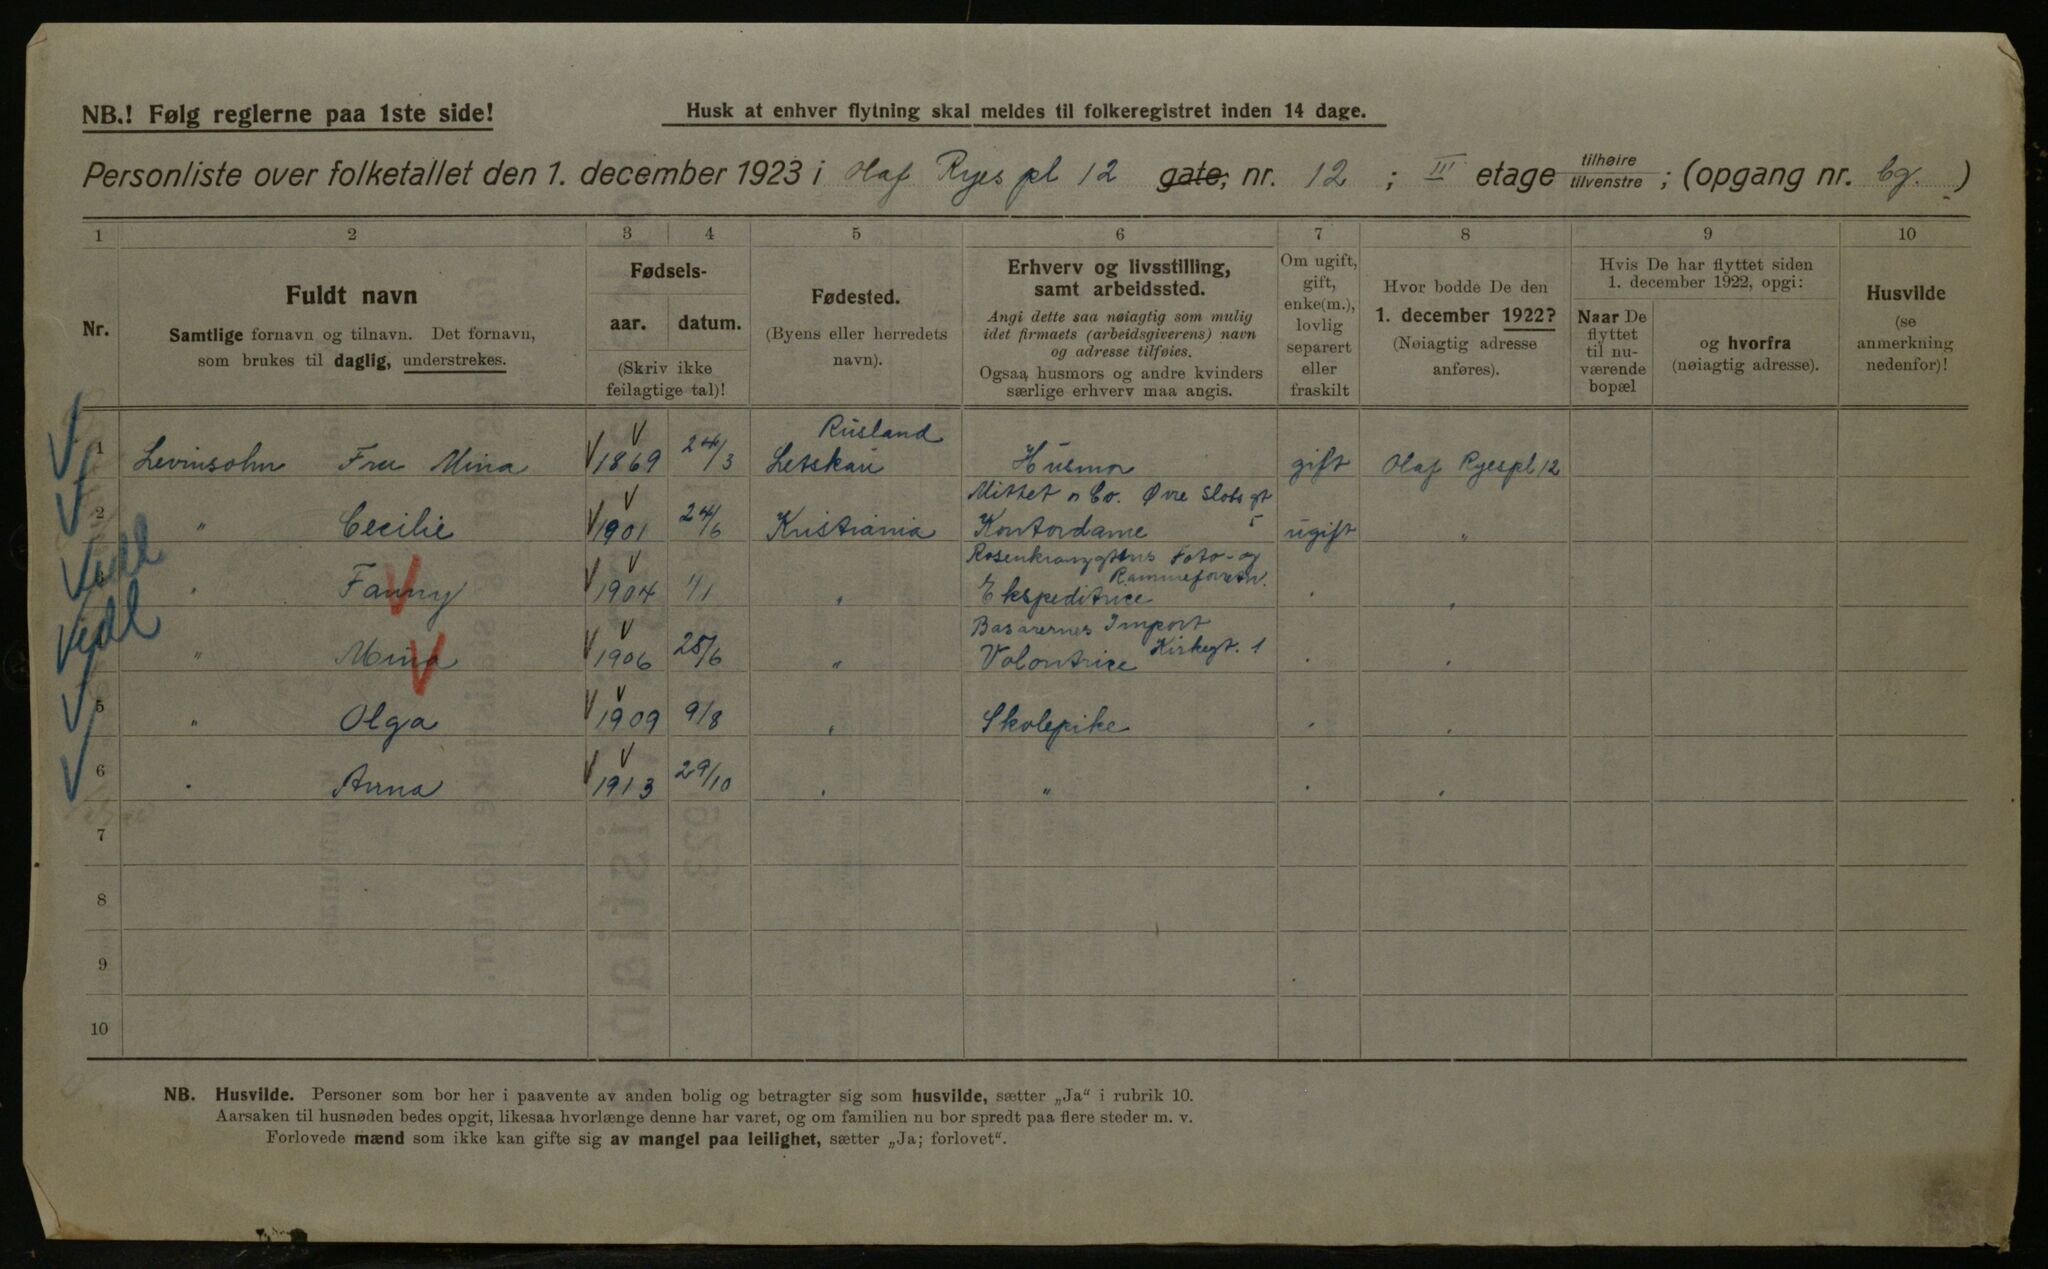 NB.! Følg reglerne paa 1ste side!
Husk at enhver flytning skal meldes til folkeregistret inden 14 dage.
Personliste over folketallet den 1. december 1923 i Olaf Ryes pl 12 gate, nr. 12 ; III etage tilhøire tilvenstre ; (opgang nr. bg. )
1 2 3 4 5 6 7 8 9 10
Nr.
Fuldt navn
Samtlige fornavn og tilnavn. Det fornavn,
som brukes til daglig, understrekes.
Fødsels-
aar. datum.
(Skriv ikke
feilagtige tal)!
Fødested.
(Byens eller herredets
navn).
Erhverv og livsstilling,
samt arbeidssted.
Angi dette saa nøiagtig som mulig
idet firmaets (arbeidsgiverens) navn
og adresse tilføies.
Ogsaa husmors og andre kvinders
særlige erhverv maa angis.
Om ugift,
gift,
enke(m.),
lovlig
separert
eller
fraskilt
Hvor bodde De den
1. december 1922?
(Nøiagtig adresse
anføres).
Hvis De har flyttet siden
1. december 1922, opgi:
Naar De
flyttet
til nu-
værende
bopæl
og hvorfra
(nøiagtig adresse).
Husvilde
(se
anmerkning
nedenfor)!
Rusland
1 Levinsohn Fru Mina 1869 24/3 Letskau Husmor gift Olaf Ryespl 12
Mittet & Co. Øvre Slots gt 5
2 " Cecilie 1901 24/6 Kristiania Kontordame ugift "
Rosenkrantzgtens Foto- og
Rammeforretn.
Vedl " Fanny 1904 1/1 " Ekspeditrice " "
Basarernes Import
Kirkegt. 1
Vedl " Mina 1906 25/6 " Volontrice " "
5 " Olga 1909 9/8 " Skolepike " "
6 " Anna 1913 29/10 " " " "
7
8
9
10
NB. Husvilde. Personer som bor her i paavente av anden bolig og betragter sig som husvilde, sætter „Ja“ i rubrik 10.
Aarsaken til husnøden bedes opgit, likesaa hvorlænge denne har varet, og om familien nu bor spredt paa flere steder m. v.
Forlovede mænd som ikke kan gifte sig av mangel paa leilighet, sætter „Ja; forlovet“.